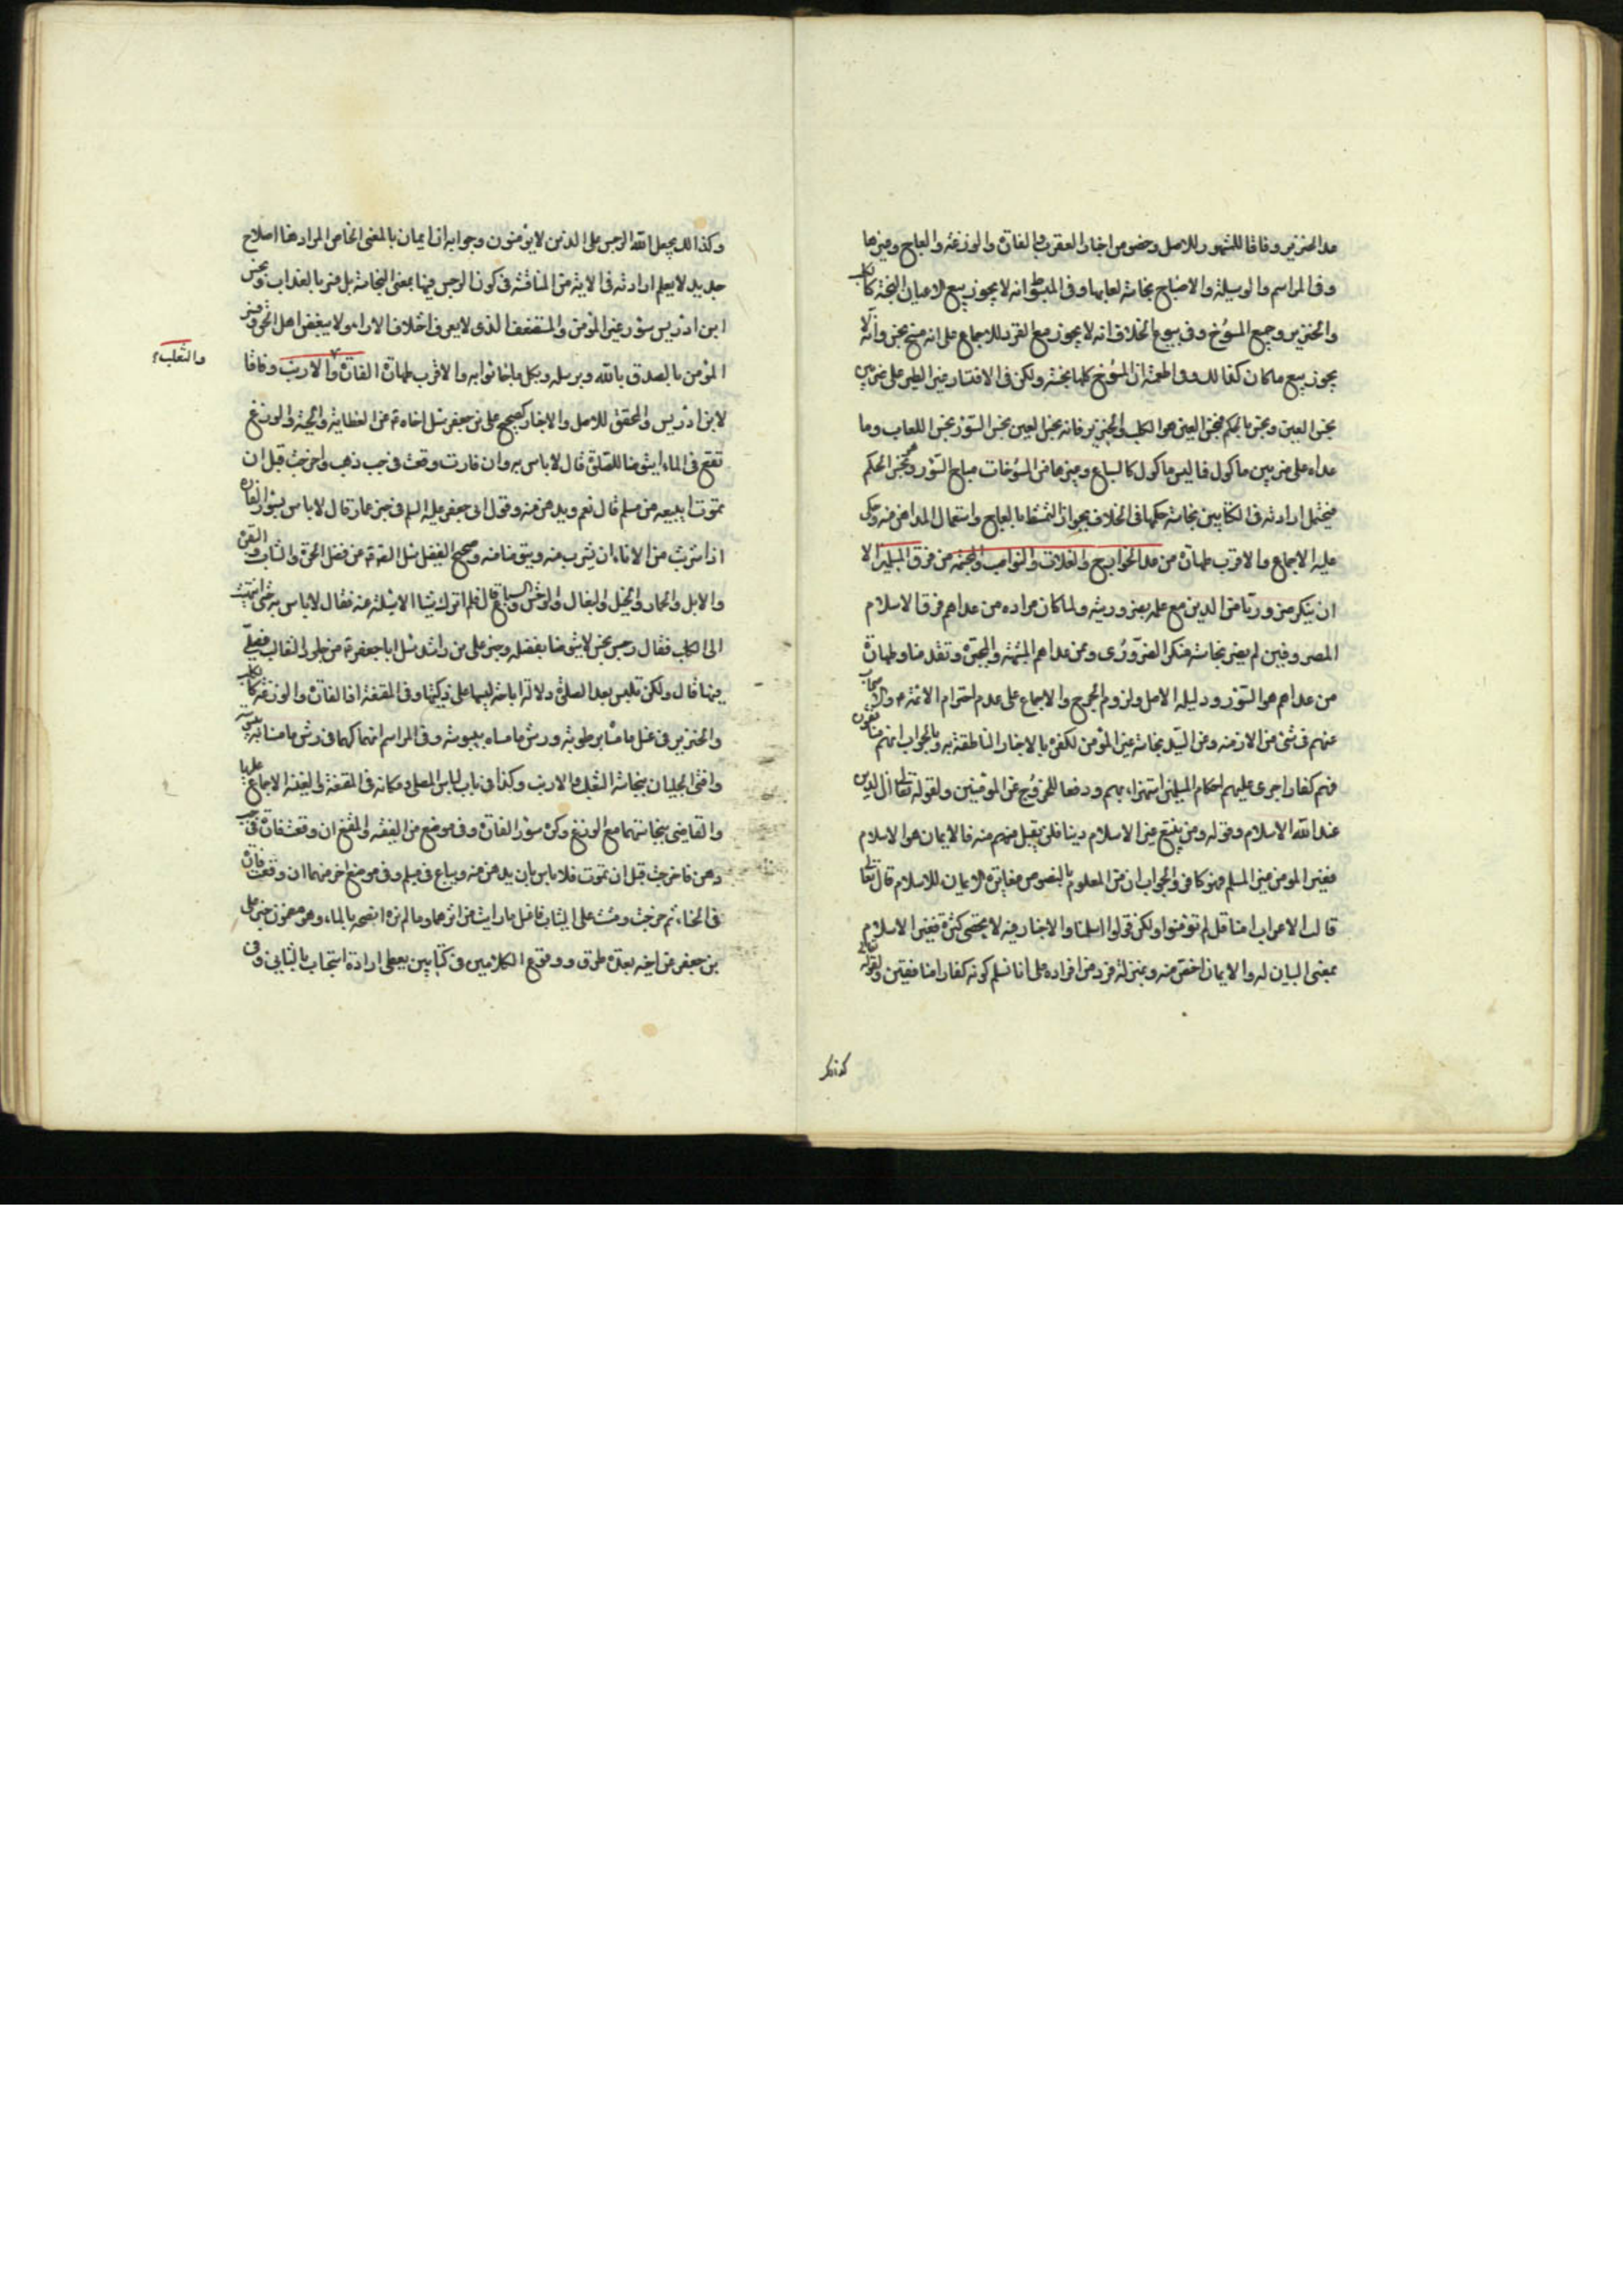 عدا الخنزير وفاقا للمشهور للاصل وخصوص اخبار العقرب والفارة والوزغة والعاج وغيرها
وفي المراسم والوسيلة والاصباح نجاسة لعابها وفي المبسوط انه لا يجوز بيع الاعيان النجسة كالكلب
والخنزير وجميع المسوخ وفي بيوع الخلاف انه لا يجوز بيع القرد للاجماع على انه مسخ نجس وانه لا
يجوز بيع ما كان كذلك وفي اطعمته ان المسوخ كلها نجسة ولكن في الاقتصار غير الطير على ضربين
نجس العين ونجس الحكم فنجس العين هو الكلب والخنزير فانه نجس العين نجس السؤر نجس اللعاب وما
عداه على ضربين ماكول فاليس ماكول كالسباع وغيرها من المسوخات مباح السؤر وهو نجس الحكم
فيحتمل ارادته في الكتابين بنجاسة حكمها في الخلاف بجواز التمشط بالعاج واستعمال المداهن منه وحكى
عليه الاجماع والاقرب طهارة من عدا الخوارج والغلاة والنواصب والمجسمة من فرق المسلمين الا
ان ينكر ضروريا من الدين مع علمه بضروريته ولما كان مراده من عداهم فرق الاسلام
المعروفين لم يضر نجاسة منكر الضروري ومن عداهم المشبهة والمجبرة وتقدمنا وطهارة
من عداهم هو السؤر ودليله الاصل ولزوم الحرج والاجماع على عدم احتراز الائمة ع والاصحاب
عنهم في شئ من الازمنة وعن السيد نجاسة غير المؤمن لكفره بالاخبار الناطقة به والجواب انهم منافقون
فهم كفار اجرى عليهم احكام المسلمين استهزاء بهم ودفعا للحرج عن المؤمنين ولقوله تعالى ان الدين
عند الله الاسلام وقوله ومن يبتغ غير الاسلام دينا فلن يقبل منهم منه فالايمان هو الاسلام
فغير المؤمن غير المسلم فهو كافر والجواب ان من المعلوم بالنصوص مغايرة الايمان للاسلام قال تعالى
قالت الاعراب امنا قل لم تؤمنوا ولكن قولوا اسلمنا والاخبار فيه لا تحصى كثرة فغير الاسلام
بمعنى المباين له والايمان اخص منه وبمنزلة فرد من افراده على انا نسلم كونه كفارا منافقين ولقوله تعالى
كذلك
وكذلك يجعل الله الرجس على الذين لا يؤمنون وجوابه ان ايمان بالمعنى الخاص المراد هنا اصطلاح
جديد لا يعلم ارادته في الاية مع المناقشة في كون الرجس فيها بمعنى النجاسة بل فسر بالعذاب ونجس
ابن ادريس سؤر غير المؤمن والمستضعف الذي لا يعرف اختلاف الاراء ولا يبغض اهل الحق وفسر
المؤمن بالمصدق بالله وبرسله وبكل ما جاءوا به والاقرب طهارة الفارة والارنب وفاقا
والثعلب
لابن ادريس والمحقق للاصل والاخبار كصحيح علي بن جعفر سئل اخاه ع عن العظاية والحية والوزغ
تقع في الماء ايتوضا للصلوة قال لا باس به وان فارة وقعت في حب دهن واخرجت قبل ان
تموت ايبيعه من مسلم قال نعم ويدهن منه وقول ابي جعفر عليه السلم في خبر عمار قال لا باس بسؤر الفارة
اذا شربت من الاناء ان يشرب منه ويتوضا منه وصحيح الفضل سئل الصادق ع عن فضل الهرة والشاة والبقرة
والابل والحمار والخيل والبغال والوحش والسباع قال فلم اترك شيئا الا سئلته عنه فقال لا باس به حتى انتهيت
الى الكلب فقال رجس نجس لا يتوضا بفضله وخبر علي بن راشد سئل ابا جعفر ع عن جلود الثعالب فيصلى
فيها قال ولكن تلبس بعد الصلوة دلالة اباحة لبسها على ذكيتها وفي المقنعة ان الفارة والوزغة كالكلب
والخنزير في غسل ما مساه برطوبة ورش ما مساه بيبوسة وفي المراسم انهما كهما في رش ما مساه بيبوسة
وافتى الحلبيان بنجاسة الثعلب والارنب وكذا في باب لباس المصلي ومكانه في المقنعة والغنية الاجماع عليها
والقاضي بنجاستهما مع الوزغ وكره سؤر الفارة وفي موضع من الفقيه والمقنع ان وقعت فارة في حب
دهن فاخرجت قبل ان تموت فلا باس بان يدهن منه ويباع من مسلم وفي موضع اخر منهما ان وقعت فارة
في الماء ثم خرجت ومشت على الثياب فاغسل ما رايت من اثرها وما لم تره انضحه بالماء وهو مضمون خبر علي
بن جعفر عن اخيه بعدة طرق ووقوع الكلامين في كتابين يعطى ارادة استحباب الثاني وفي